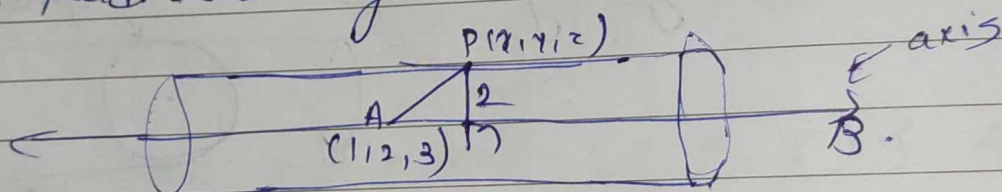 P(x, y, z)
axis
2
A
(1, 2, 3)
B.